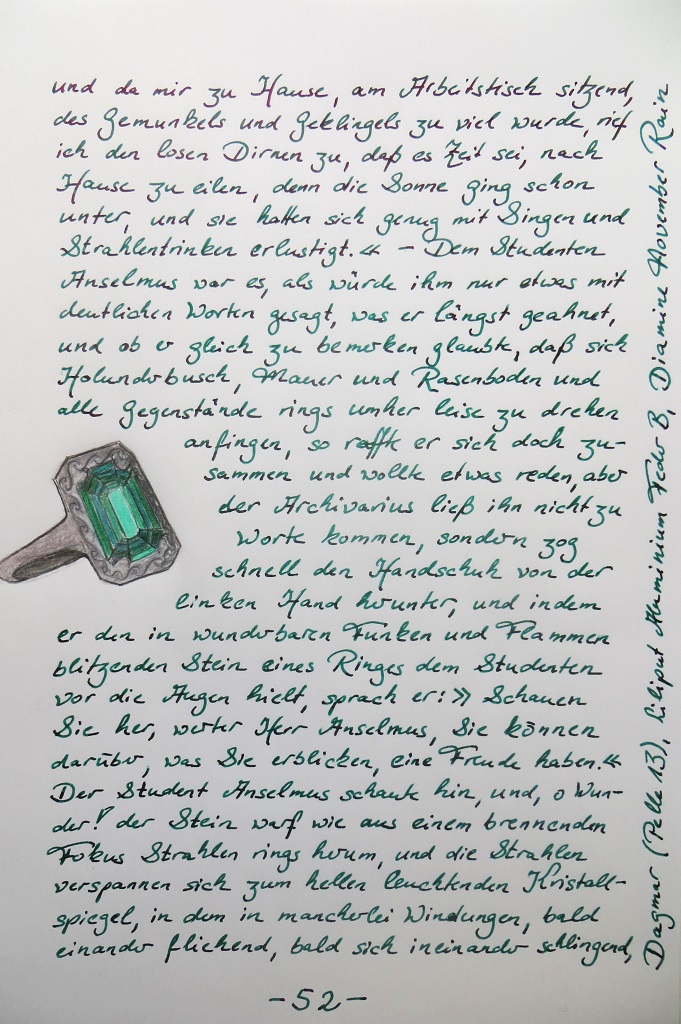 und da mir zu Hause, am Arbeitstisch sitzend,
des Gemunkels und Geklingels zu viel wurde, rief
ich den losen Dirnen zu, daß es Zeit sei, nach
Hause zu eilen, denn die Sonne ging schon
unter, und sie hatten sich genug mit Singen und
Strahlentrinken erlustigt.« – Dem Studenten
Anselmus war es, als würde ihm nur etwas mit
deutlichen Worten gesagt, was er längst geahnet,
und ob er gleich zu bemerken glaubte, daß sich
Holunderbusch, Mauer und Rasenboden und
alle Gegenstände rings umher leise zu drehen
anfingen, so raffte er sich doch zu-
sammen und wollte etwas reden, aber
der Archivarius ließ ihn nicht zu
Worte kommen, sondern zog
schnell den Handschuh von der
linken Hand herunter, und indem
er den in wunderbaren Funken und Flammen
blitzenden Stein eines Ringes dem Studenten
vor die Augen hielt, sprach er: »Schauen
Sie her, werter Herr Anselmus, Sie können
darüber, was Sie erblicken, eine Freude haben.«
Der Student Anselmus schaute hin, und, o Wun-
der! der Stein warf wie aus einem brennenden
Fokus Strahlen rings herum, und die Strahlen
verspannen sich zum hellen leuchtenden Kristall-
spiegel, in dem in mancherlei Windungen, bald
einander fliehend, bald sich ineinander schlingend,
-52-
Dagmar (Pelle 13), Liliput Aluminium Feder B, Diamine November Rain